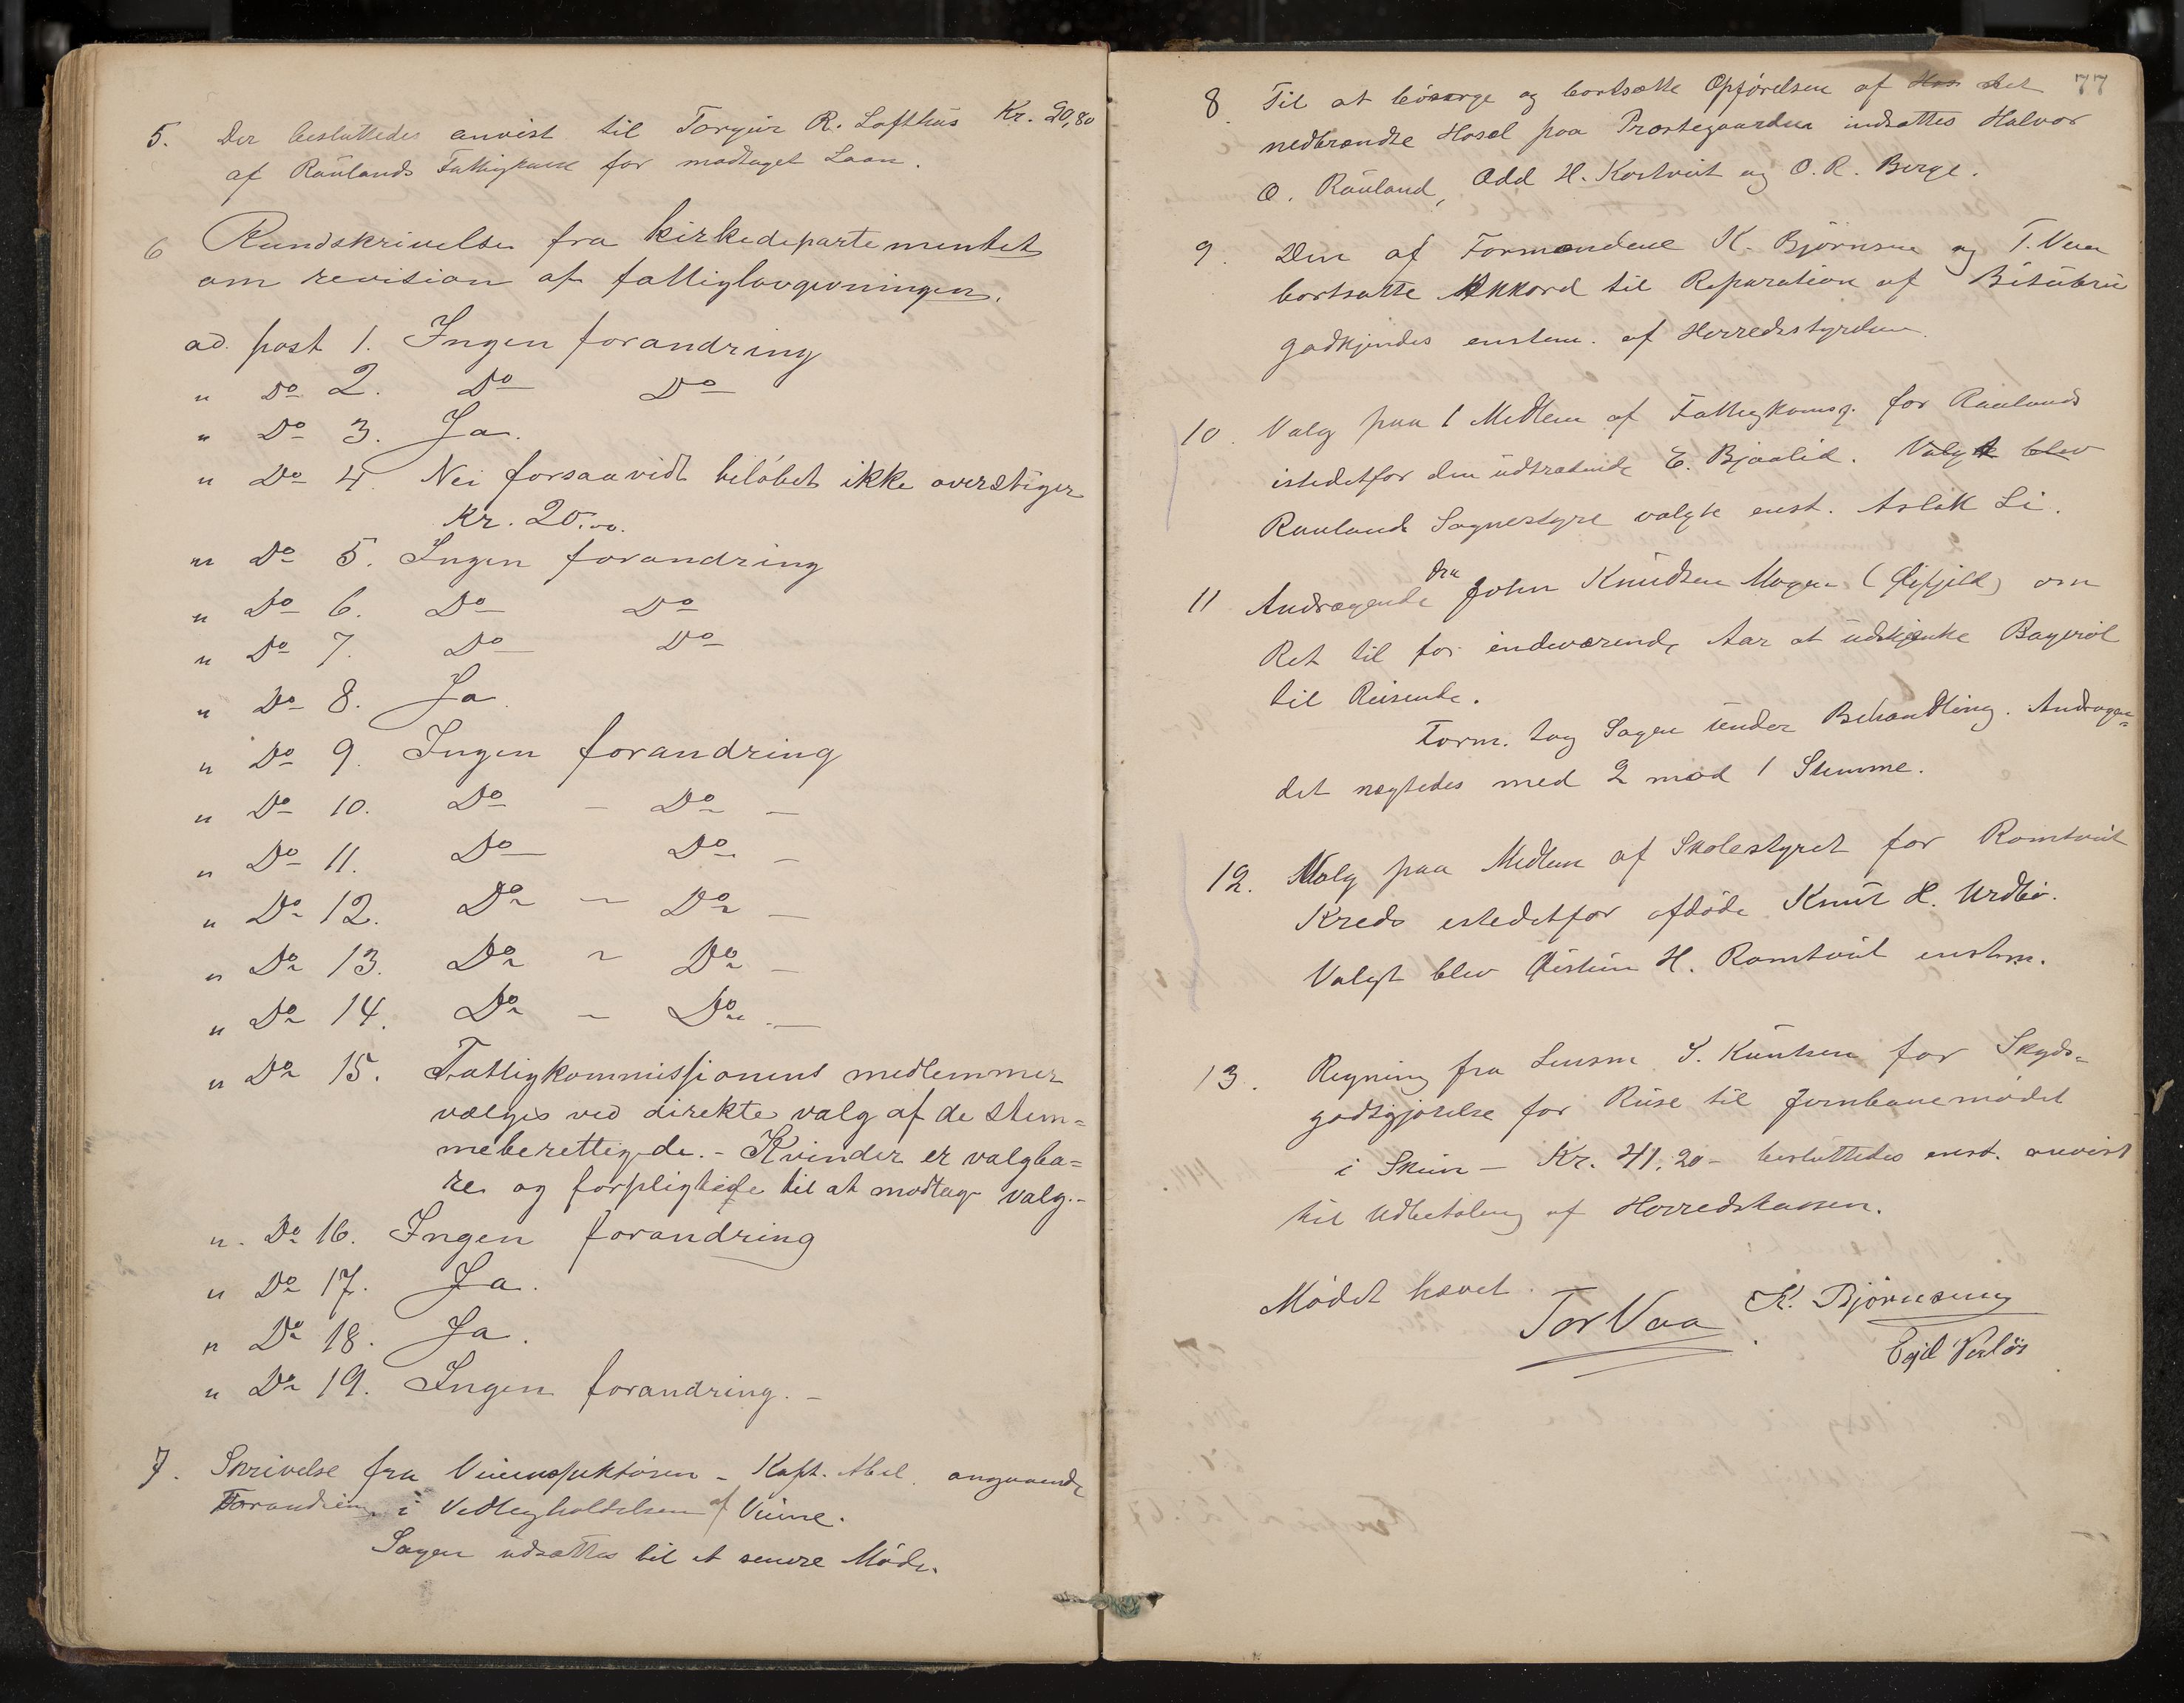 5. Der besluttedes anvist til Torgür R. Lofthüs Kr. 20,80
af Raülands Fattigkasse for modtaget Laan.
6 Rundskrivelse fra kirkedepartementet
om revision af fattiglovgivningen.
ad. post 1. Ingen forandring
" Do 2. Do Do
" Do 3. Ja.
" Do 4. Nei forsaavidt beløbet ikke overstiger
Kr. 20.00.
" Do 5. Ingen forandring
" Do 6. Do Do
" Do 7. Do Do
" Do 8. Ja.
" Do 9. Ingen forandring
" Do 10. Do - Do -
" Do 11. Do Do -
" Do 12. Do - Do -
" Do 13. Do - Do -
" Do 14. Do - Do -
" Do 15. Fattigkommissionens medlemmer
vælges ved direkte valg af de stem=
meberettigede. - Kvinder er valgba=
re og forpligtede til at modtage valg.-
" Do 16. Ingen forandring
" Do 17. Ja.
" Do 18. Ja.
" Do 19. Ingen forandring. -
7. Skrivelse fra Veiinspektøren - Kapt. Abel. angaaende
Forandring i Vedligholdelsen af Veiene.
Sagen udsættes til et senere Møde.
77
8. Til at besørge og bortsætte Opførelsen af det
nedbrændte Hosel paa Præstegaarden indsattes Halvor
O. Raüland, Odd H. Kostveit og O. R. Berge.
9. Den af Formændene K. Bjørnsen og T. Vaa
bortsatte Akkord til Reparation af Bitübrü
godkjendes enstem. af Herredsstyrelsen.
10. Valg paa 1 Medlem af Fattigkoms. for Raulands
istedetfor den üdtrædende E. Bjaalid. Valgt blev
Raulands Sognestyre valgte enst. Aslak Li.
11 Andragende fra John Knüdsen Mogen (Øifjeld) om
Ret til for indeværende Aar at üdskjænke Bayerøl
til Reisende.
Form. tog Sagen ünder Behandling. Andragen=
det nægtedes med 2 mod 1 Stemme.
12. Valg paa Medlem af Skolestyret for Romtveit
Kreds istedetfor afdøde Knut H. Urdbø.
Valgt blev Øistein H. Romtveit enstem.
13. Regning fra Lensm S. Küntsen for Skyds=
godtgjørelse for Reise til Jernbanemødet
i Skien - Kr. 41,20 - beslüttedes enst. anvist
til Udbetaling af Herredskassen.
Mødet hævet.
Tor Vaa K. Bjørnsen
Egil Vesløs